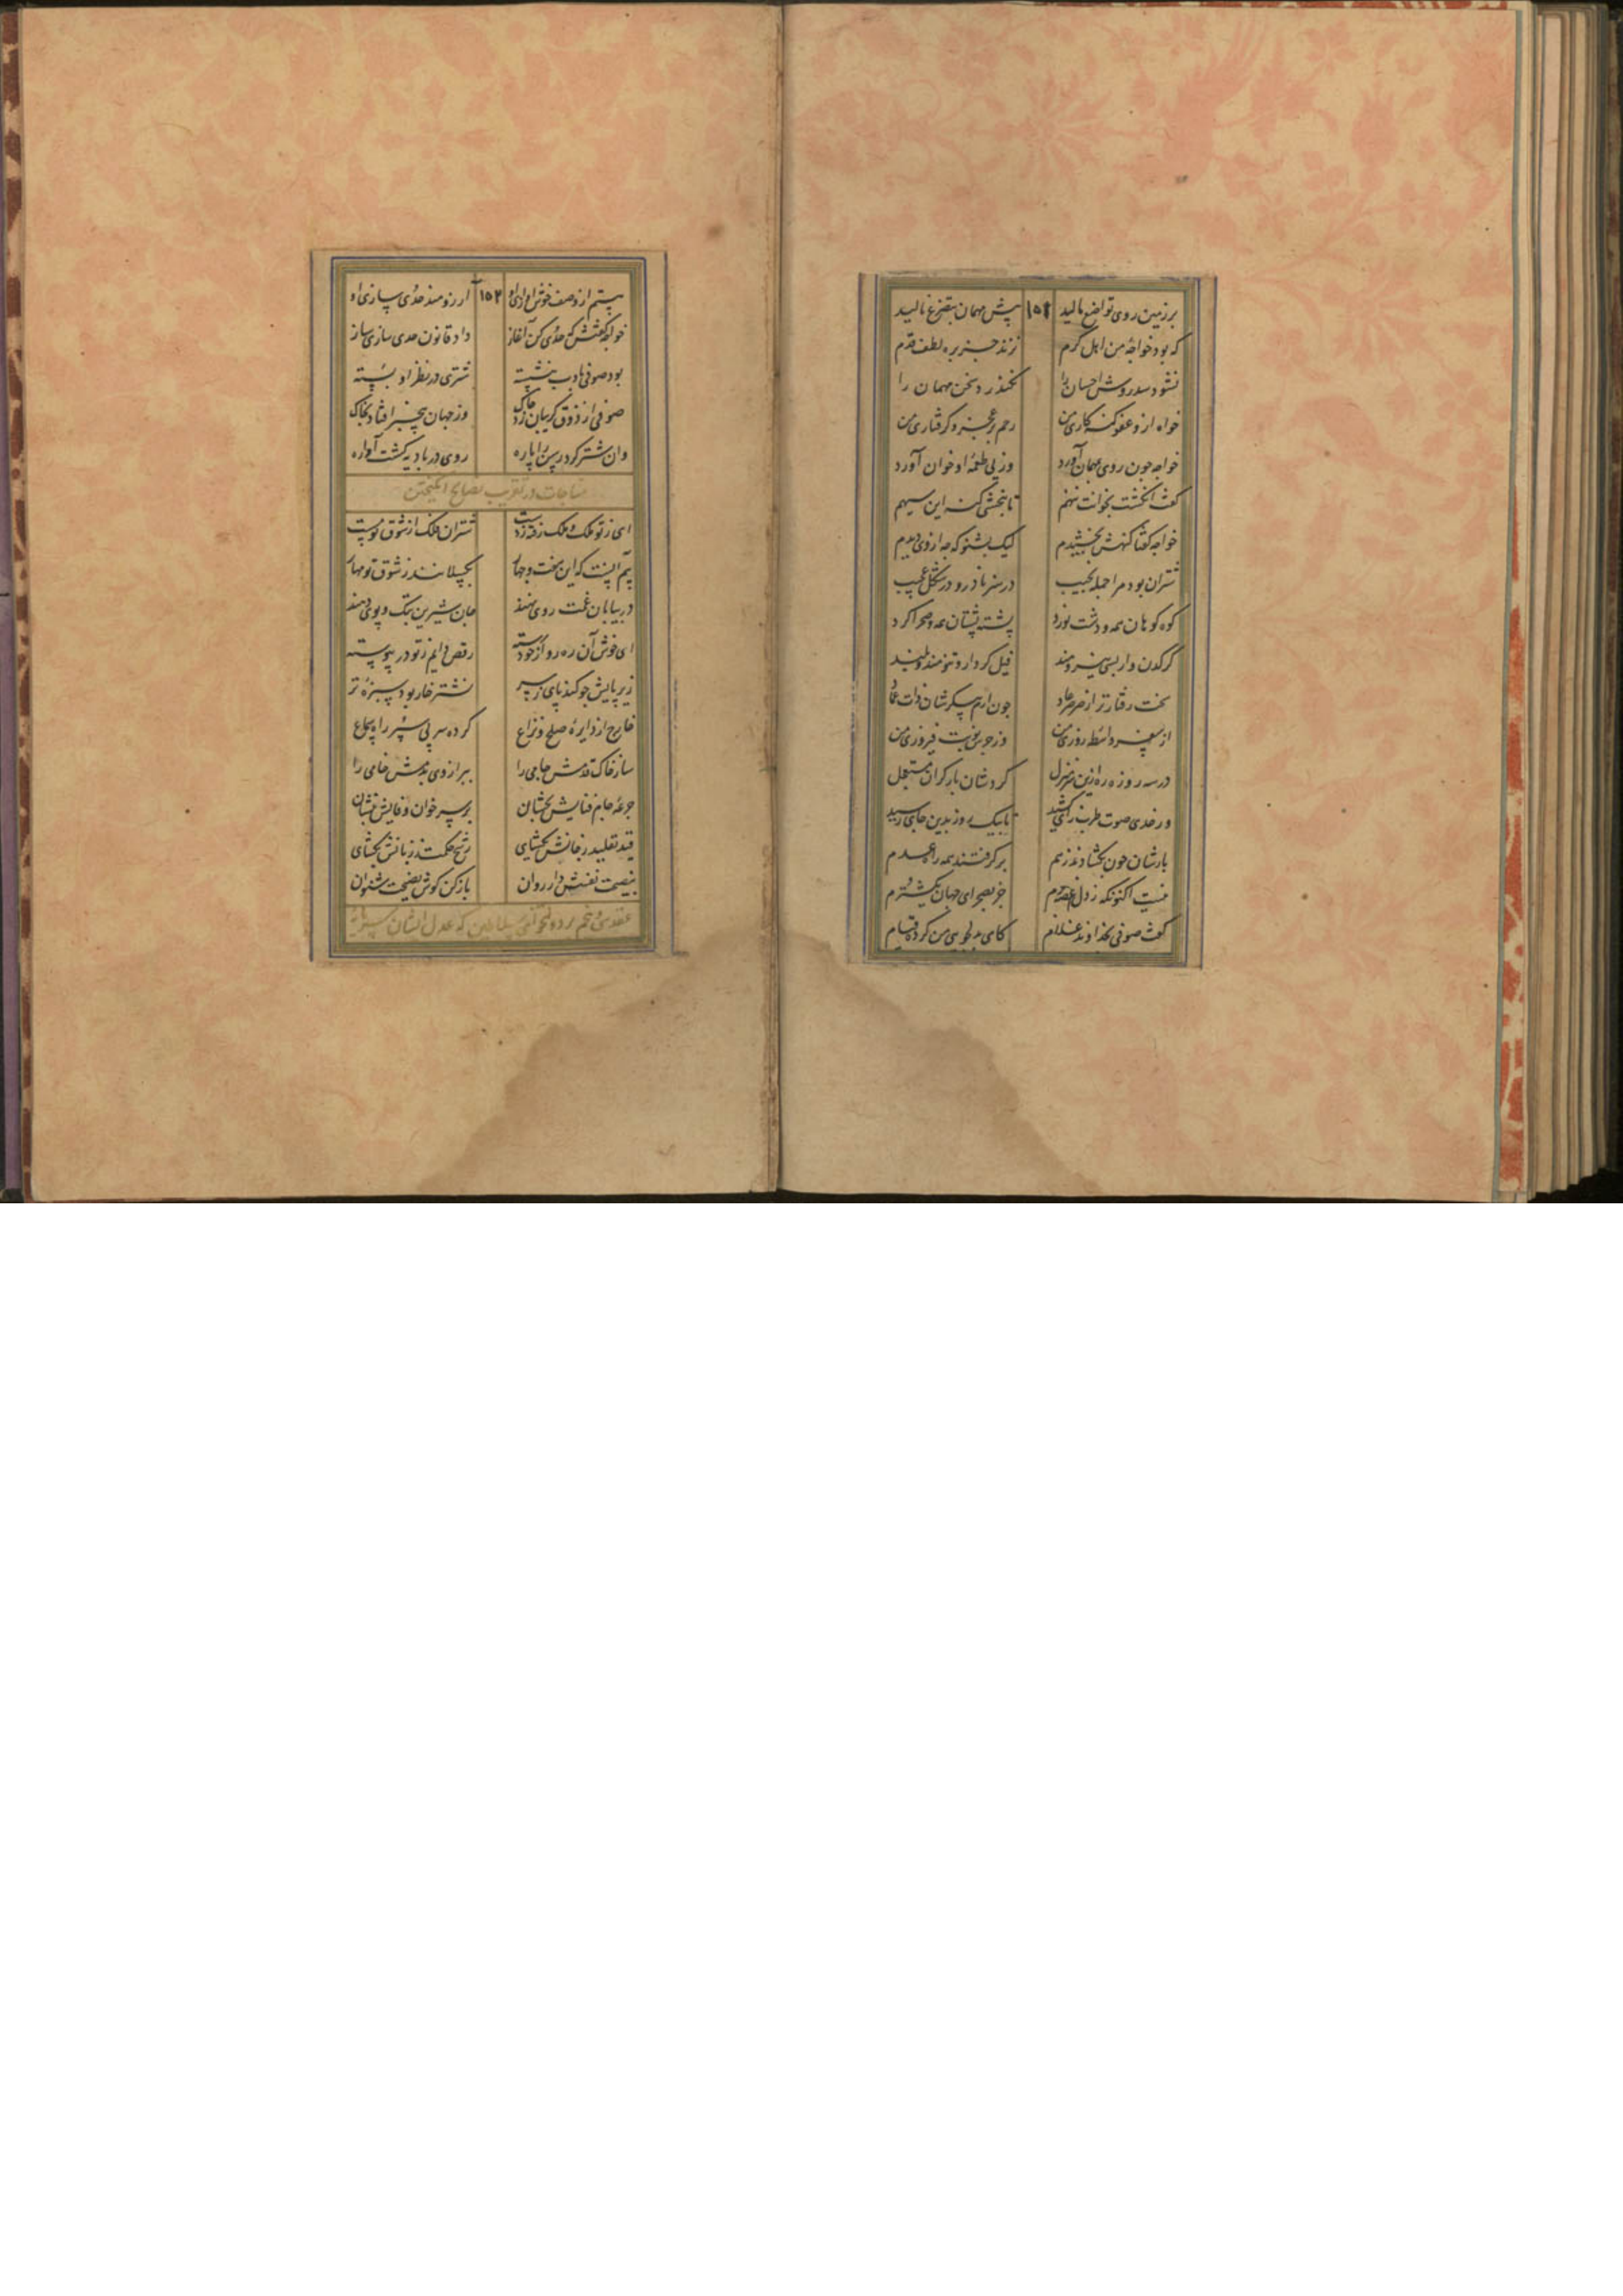 برزمین روی تواضع مالید ۱۵۲ پیش مهمان بتضرع نالید
که بود خواجهٔ من اهل کرم نزند جز بره لطف قدم
نشود سد روش احسان را نگذرد سخن مهمان را
خواه ازو عفو گنه کاری من رحم بر عجز و گرفتاری من
خواجه چون روی بمهمان آورد وز پی طعمهٔ او خوان آورد
گفت انگشت بخوانت ننهم تا نبخشی گنه این سیهم
خواجه گفتا گنهش بخشیدم لیک بشنو که چه از وی دیدم
شتران بود مرا جمله نجیب در سفر نادره در شکل عجیب
کوه کوهان همه و دشت نورد پشته پشتان همه و صحرا گرد
کرگدن وار بسی نیرومند فیل کردار و تنومند و بلند
سخت رفتارتر از صرصر عاد چون ارم پیکرشان ذات عماد
از سفر واسطه روزی من وز جرس نوبت فیروزی من
در سه روزه ره ازین سر منزل کردشان بار گران مستعجل
ور حدی صوت طرب را کشید تا بیک روز بدین جای رسید
بارشان چون بگشادند ز هم برگرفتند همه راه عدم
نیست اکنونکه ز دل غصه خورم جز بصحرای جهان یک شترم
گفت صوفی بخداوند غلام کای بدلجویی من کرده قیام
پستم از وصف خوش آوازی او ۱۵۳ آرزومند حدی پردازی او
خواجه گفتش که حدی کن آغاز داد قانون حدی سازی ساز
بود صوفی بادب بنشسته شتری در نظر او بسته
صوفی از ذوق گریبان زد چاک وز جهان بیخبر افتاد بخاک
وان شتر کرد رسن را پاره روی در بادیه گشت آواره
مناجات در تقریب نصایح انگیختن
ای ز تو ملک و ملک رفته ز دست شتران فلک از شوق تو مست
بیم آنست که این سخت و چهار بگسلانند ز شوق تو مهار
در بیابان غمت روی نهند جان شیرین بتک و پوی دهند
ای خوش آن ره رو از خود رسته رقص دایم ز تو در پیوسته
زیر پایش چو کند پای ز سر نشتر خار بود سبزهٔ تر
خارج از دایرهٔ صلح و نزاع کرده سر پی سپر راه سماع
ساز خاک قدمش جامی را ببر از وی بدمش خامی را
جرعهٔ جام فنایش بچشان بر سر خوان وفایش بنشان
قید تقلید ز جانش بگشای رشح حکمت ز زبانش بگشای
بنصیحت نفسش دار روان باز کن گوش نصیحت شنوان
عقد سی و پنجم در دولتخواهی سلاطین که عدل ایشان